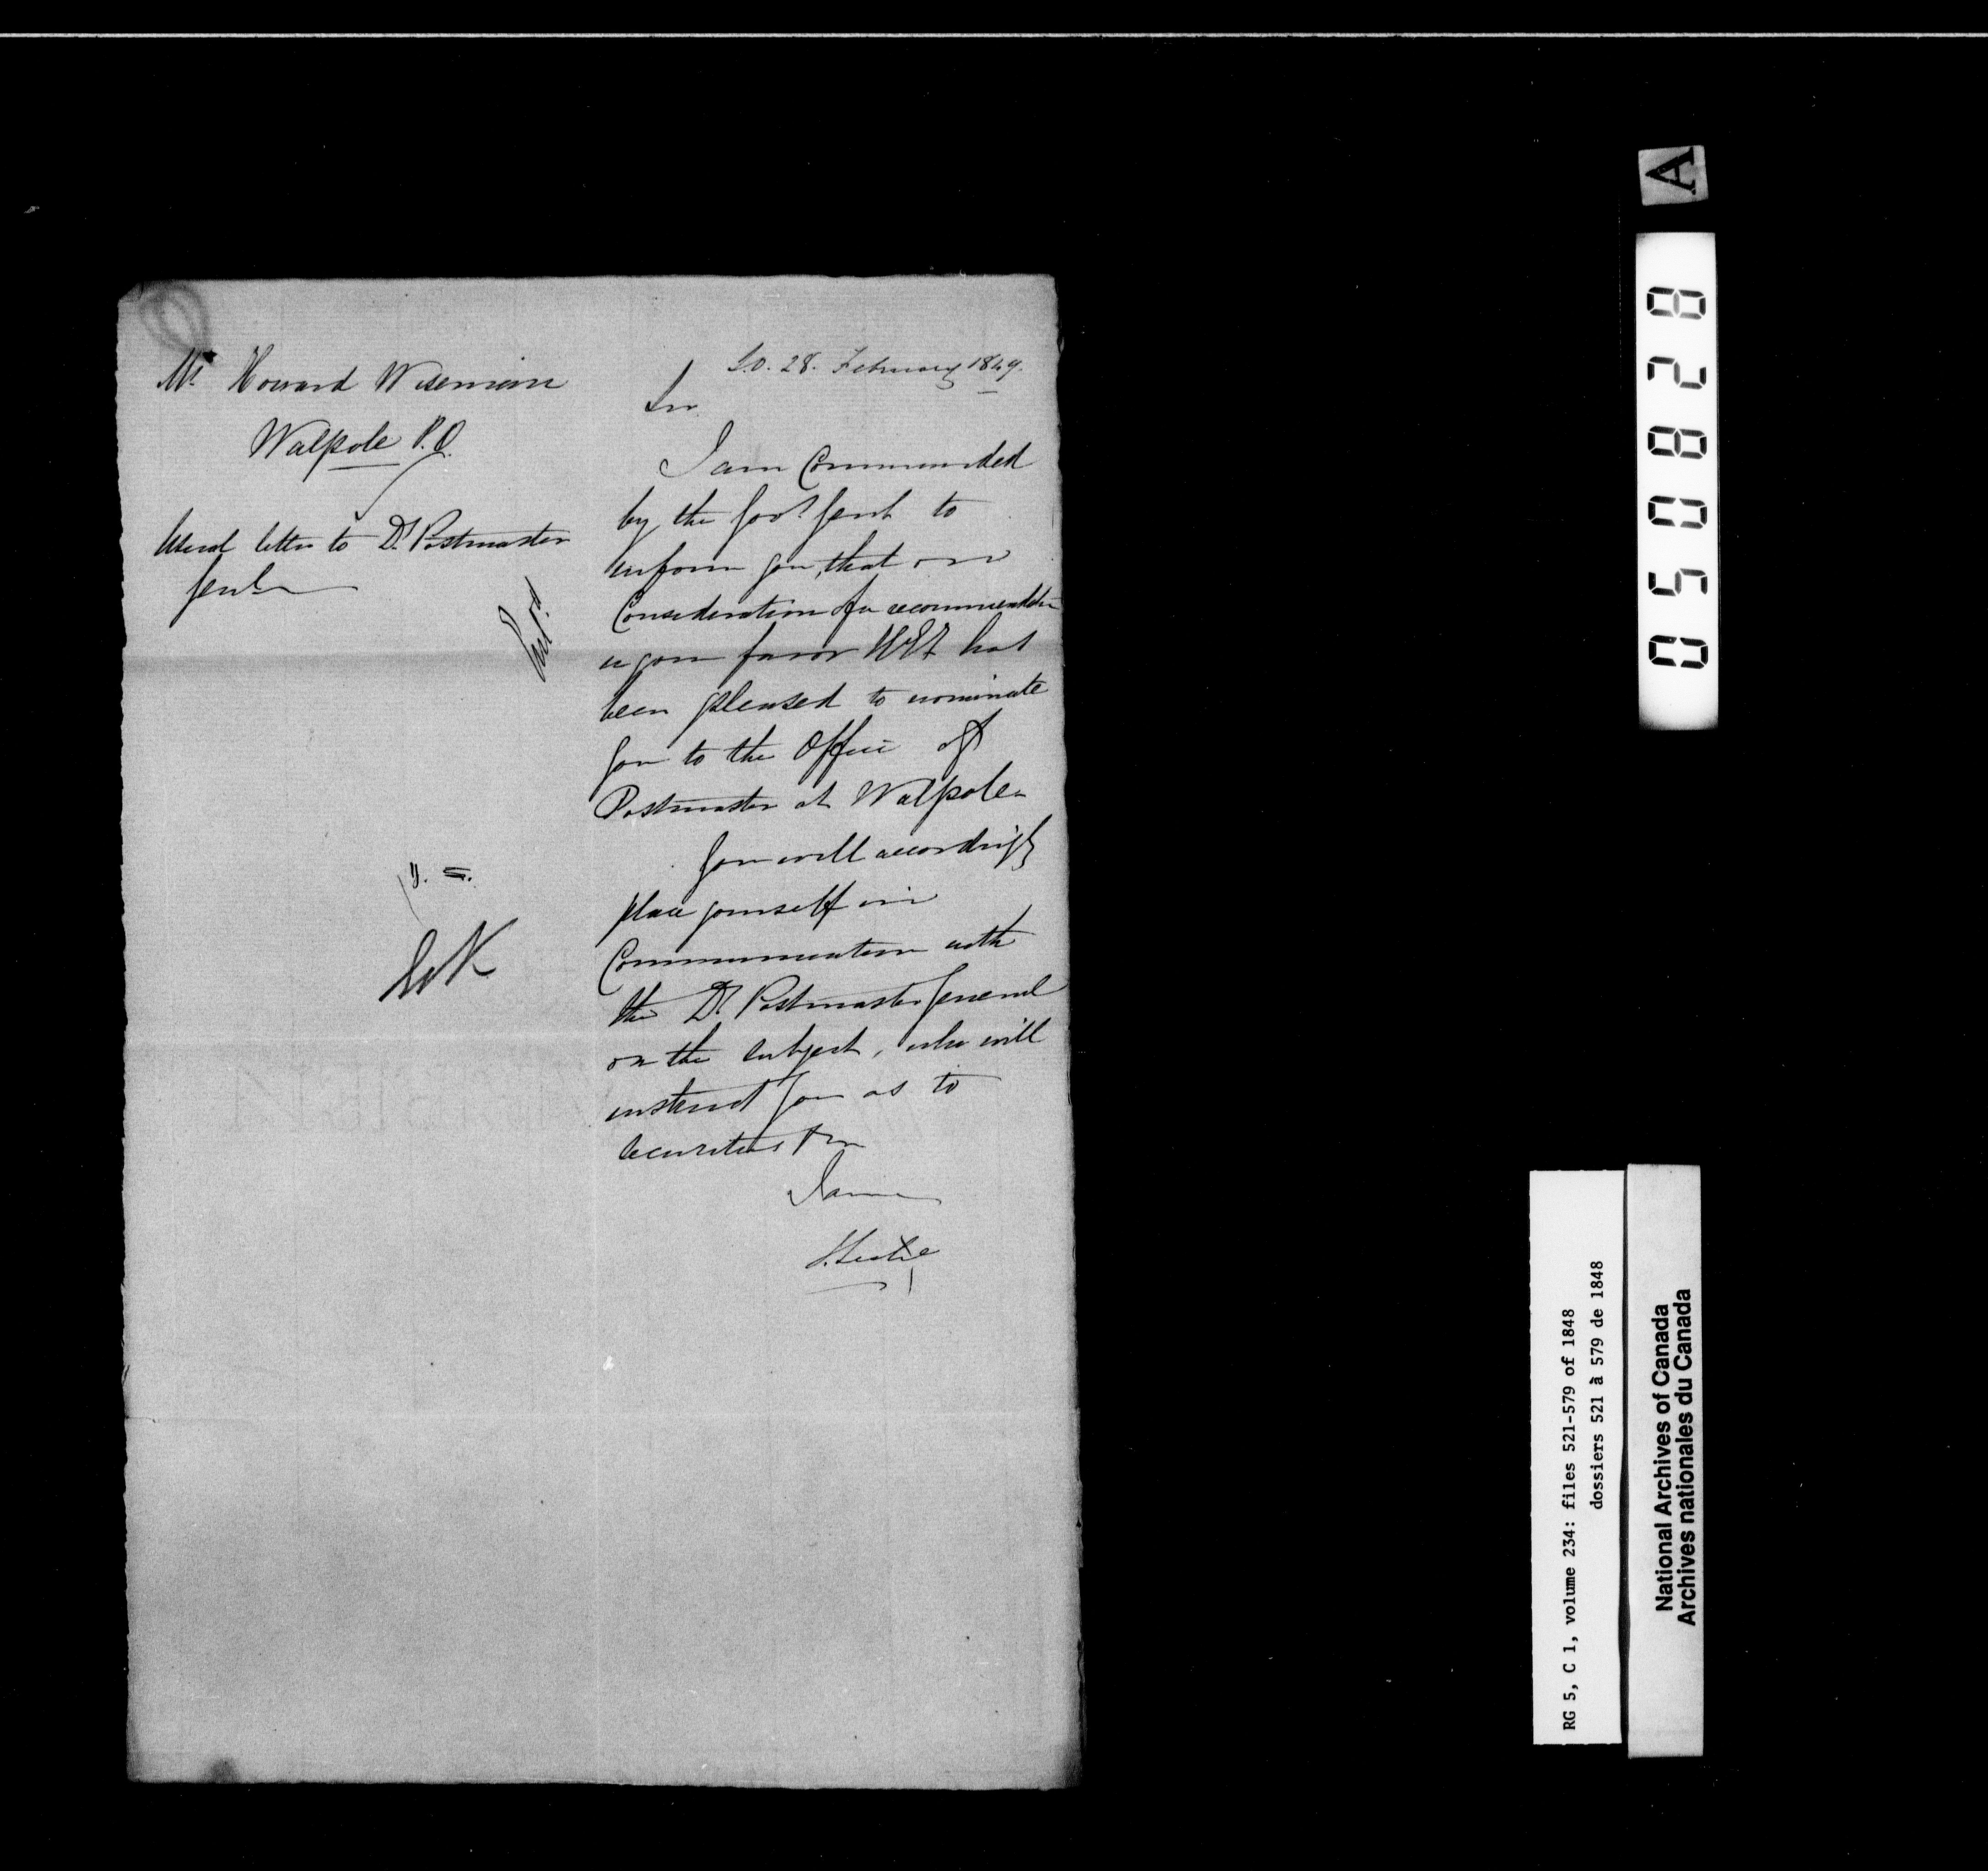 Mr Howard Wiseman
Walpole P.O.
Usual letter to Dy Postmaster
Genl
S.O. 28. February 1849.
Sir
I am Commanded
by the Govr Genl to
inform you, that on
Consideration of a recommendation
in your favor H.E. has
been pleased to nominate
you to the Office of
Postmaster at Walpole
You will accordingly
place yourself in
Communication with
the Dy Postmaster General
on the subject, who will
instruct you as to
securities &c
I am
J. Leslie
A
050828
RG 5, C 1, volume 234: files 521-579 of 1848
dossiers 521 à 579 de 1848
National Archives of Canada
Archives nationales du Canada